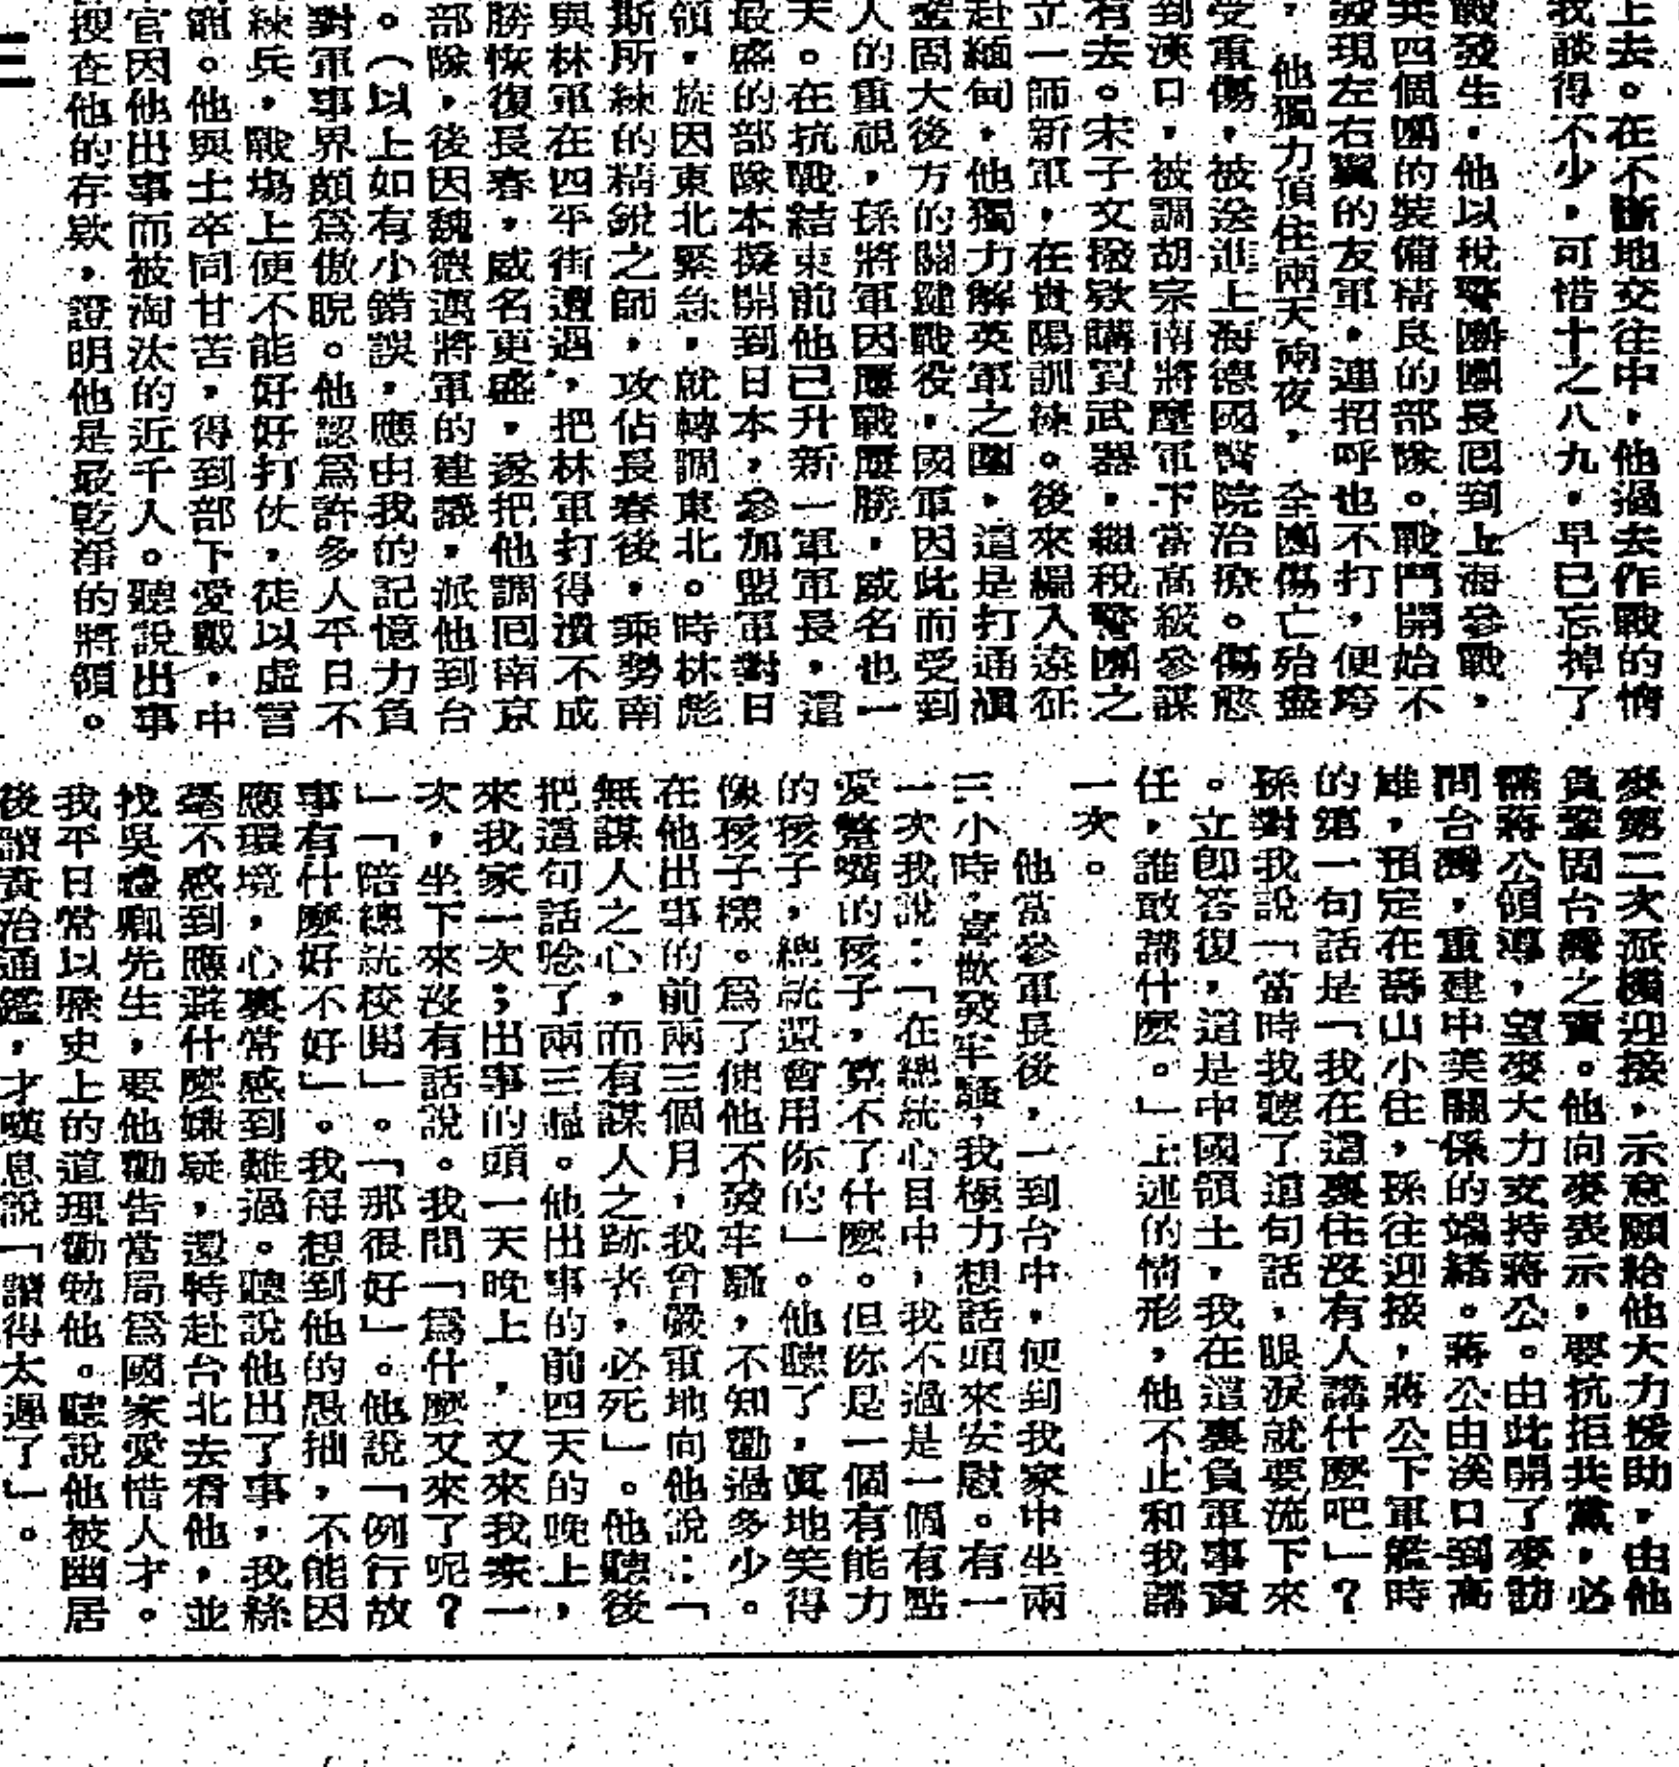 上去。在不斷地交往中，他過去作戰的情
我談得不少，可惜十之八九，早已忘掉了
戰發生，他以稅警團團長回到上海參戰，
共四個團的裝備精良的部隊。戰鬥開始不
發現左右翼的友軍，連招呼也不打，便垮
，他獨力頂住兩天兩夜，全團傷亡殆盡
受重傷，被送進上海德國醫院治療。傷愈
到漢口，被調胡宗南將軍麾下當高級參謀
有去。宋子文撥欵購買武器，繼稅警團之
立一師新軍，在貴陽訓練。後來編入遠征
赴緬甸，他獨力解英軍之圍，這是打通滇
鞏固大後方的關鍵戰役，國軍因此而受到
人的重視，孫將軍因屢戰屢勝，威名也一
天。在抗戰結束前他已升新一軍軍長，這
最盛的部隊本擬開到日本，參加盟軍對日
領，旋因東北緊急，就轉調東北。時林彪
斯所練的精銳之師，攻佔長春後，乘勢南
與林軍在四平街遭遇，把林軍打得潰不成
勝恢復長春，威名更盛，遂把他調回南京
部隊，後因魏德邁將軍的建議，派他到台
。（以上如有小錯誤，應由我的記憶力負
對軍事界頗爲傲睨。他認爲許多人平日不
練兵，戰場上便不能好好打仗，徒以虛名
寵。他與士卒同甘苦，得到部下愛戴，中
官因他出事而被淘汰的近千人。聽說出事
搜查他的存欵，證明他是最乾淨的將領。
三
麥第二次派機迎接，示意願給他大力援助，由他
負鞏固台灣之責。他向麥表示，要抗拒共黨，必
需蔣公領導，望麥大力支持蔣公。由此開了麥訪
問台灣，重建中美關係的端緒。蔣公由溪口到高
雄，預定在壽山小住，孫往迎接，蔣公下軍艦時
的第一句話是「我在這裏住沒有人講什麼吧」？
孫對我說「當時我聽了這句話，眼淚就要流下來
。立卽答復，這是中國領土，我在這裏負軍事責
任，誰敢講什麼。」上述的情形，他不止和我講
一次。
他當參軍長後，一到台中，便到我家中坐兩
三小時，喜歡發牢騷，我極力想話頭來安慰。有一
一次我說：「在總統心目中，我不過是一個有點
愛蹩嘴的孩子，算不了什麼。但你是一個有能力
的孩子，總統還會用你的」。他聽了，眞地笑得
像孩子樣。爲了使他不發牢騷，不知勸過多少。
在他出事的前兩三個月，我曾嚴重地向他說：「
無謀人之心，而有謀人之跡者，必死」。他聽後
把這句話唸了兩三遍。他出事的前四天的晚上，
來我家一次；出事的頭一天晚上，又來我家一
次，坐下來沒有話說。我問「爲什麼又來了呢？
」「陪總統校閱」。「那很好」。他說「例行故
事有什麼好不好」。我每想到他的愚拙，不能因
應環境，心裏常感到難過。聽說他出了事，我絲
毫不感到應避什麼嫌疑，還特赴台北去看他，並
找吳禮卿先生，要他勸告當局爲國家愛惜人才。
我平日常以歷史上的道理勸勉他。聽說他被幽居
後讀資治通鑑，才嘆息說「讀得太遲了」。